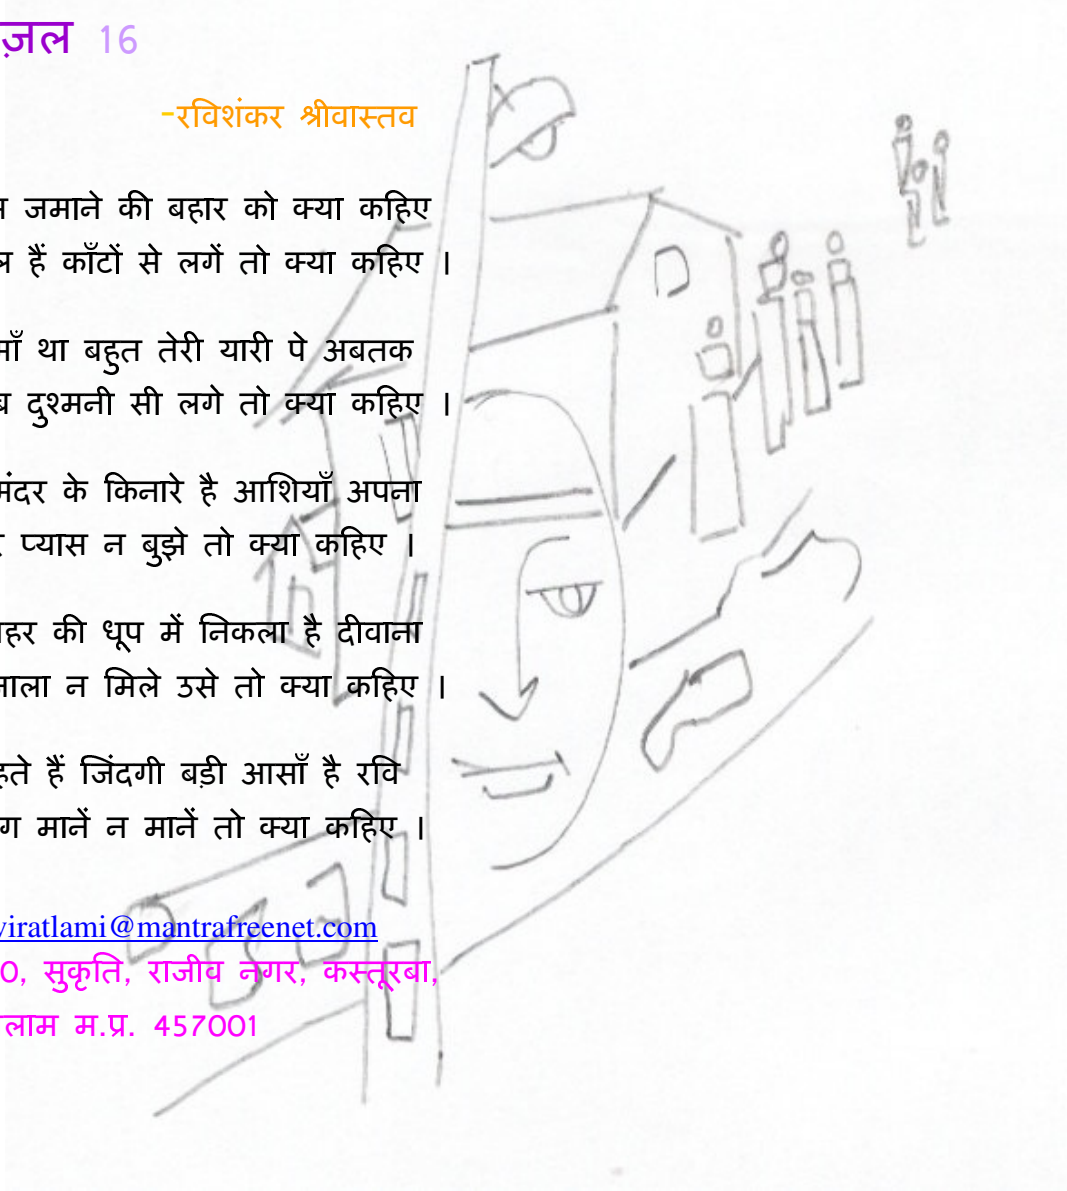 ज़ल 16
-रविशंकर श्रीवास्तव
जमाने की बहार को क्या कहिए
हैं काँटों से लगें तो क्या कहिए ।
माँ था बहुत तेरी यारी पे अबतक
ब दुश्मनी सी लगे तो क्या कहिए ।
मंदर के किनारे है आशियाँ अपना
प्यास न बुझे तो क्या कहिए ।
हर की धूप में निकला है दीवाना
ाला न मिले उसे तो क्या कहिए ।
हते हैं जिंदगी बड़ी आसाँ है रवि
ग मानें न मानें तो क्या कहिए ।
viratlami@mantrafreenet.com
0, सुकृति, राजीव नगर, कस्तूरबा,
लाम म.प्र. 457001